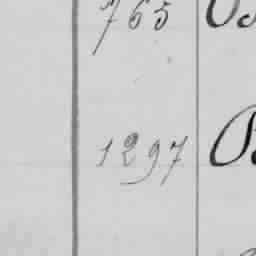 765
1297